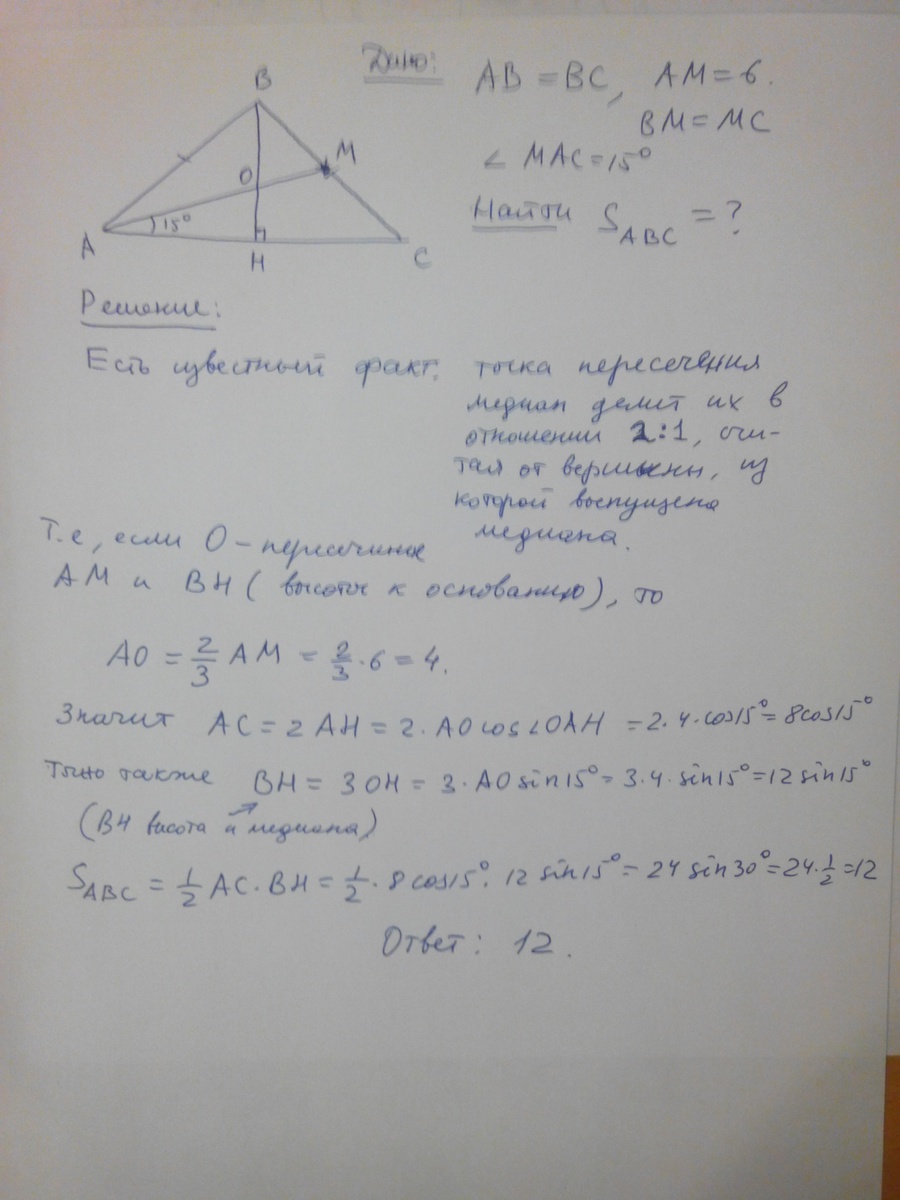 Дано: AB = BC, AM = 6.
BM = MC
∠ MAC = 15°
Найти S_ABC = ?
B
O
M
A
15°
H
C
Решение:
Есть известный факт: точка пересечения
медиан делит их в
отношении 2:1, счи-
тая от вершины, из
которой выпущена
медиана.
Т.е, если O – пересечение
AM и BH (высоты к основанию), то
AO = 2/3 AM = 2/3 · 6 = 4.
Значит AC = 2 AH = 2 · AO cos ∠OAH = 2 · 4 · cos15° = 8cos15°
Точно также BH = 3 OH = 3 · AO sin15° = 3 · 4 · sin15° = 12 sin15°
(BH высота и медиана)
S_ABC = 1/2 AC · BH = 1/2 · 8 cos15° · 12 sin15° = 24 sin30° = 24 · 1/2 = 12
Ответ: 12.